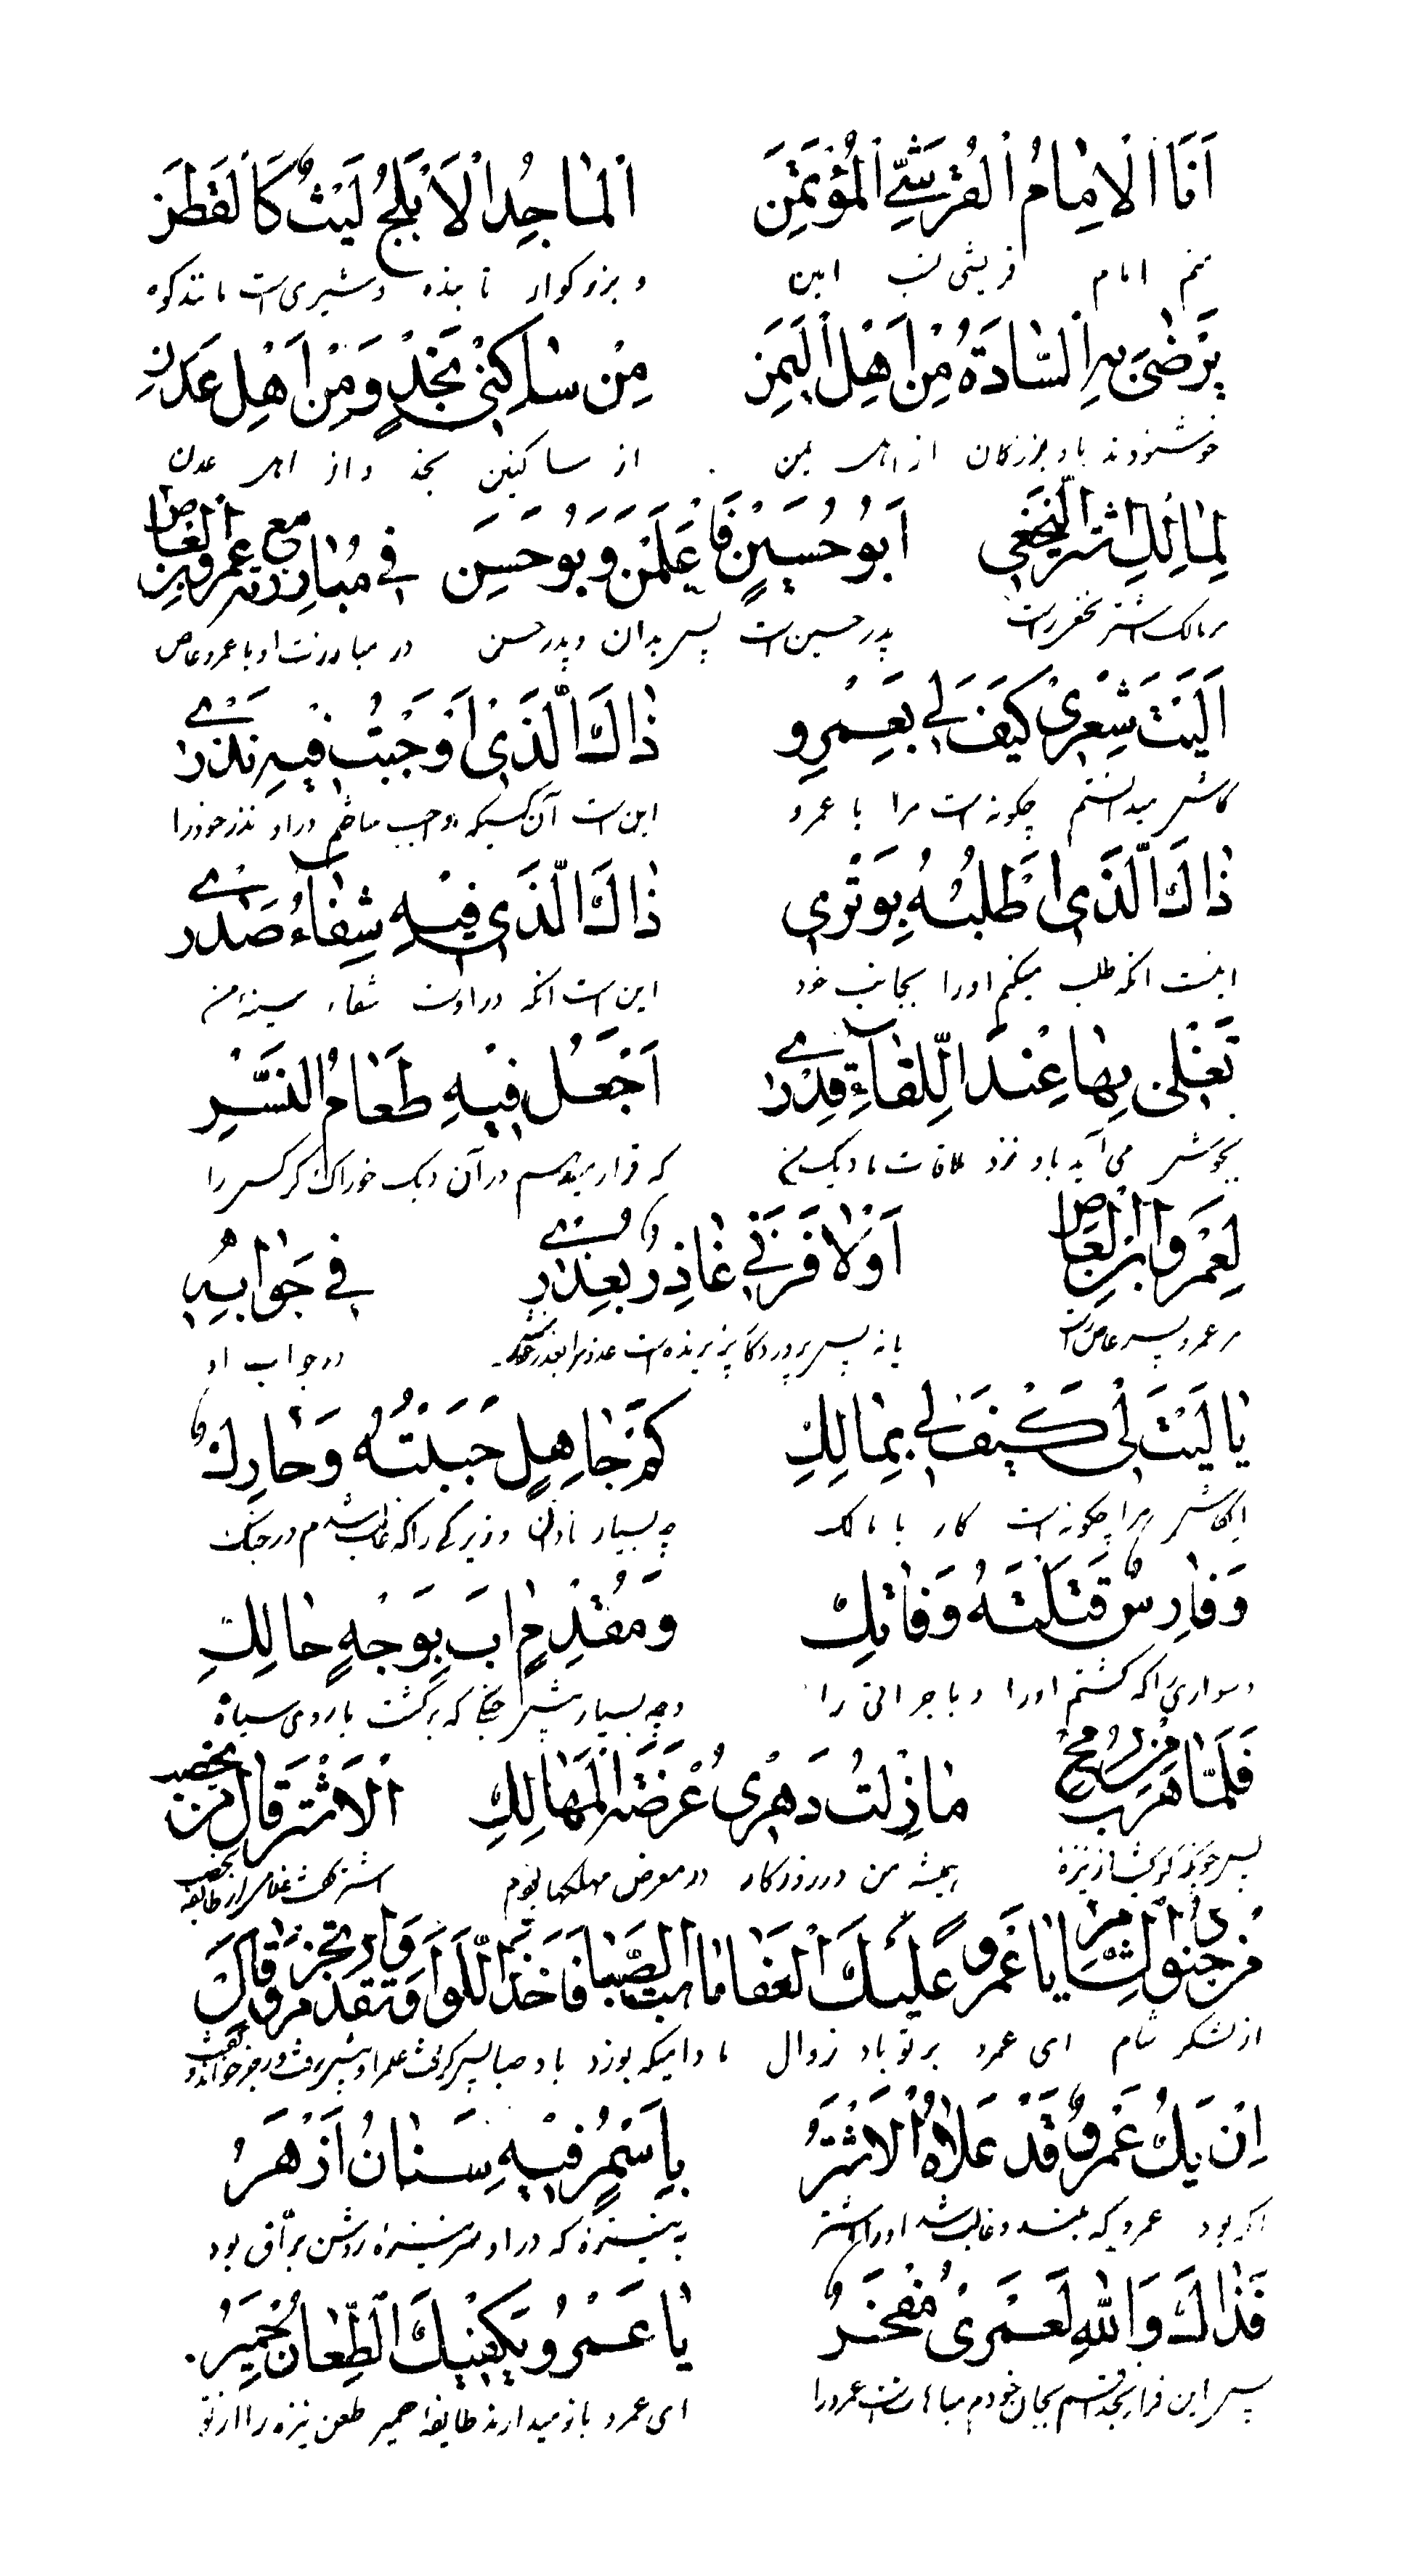 اَنَا الْاِمامُ الْقُرَشِیُّ الْمُؤْتَمِنَ الْماجِدُ الْاَبْلَجُ لَیْثٌ کَالْقَطَنَ
منم امام قریشی نسب امین و بزرکوار تابنده و شیری است مانند کوه
یَرْضیٰ بِهِ السّادَةُ مِنْ اَهْلِ الْیَمَنِ مِنْ ساکِنی نَجْدٍ وَمِنْ اَهْلِ عَدَنِ
خوشنودند باو بزرکان از اهل یمن از ساکنین نجد و از اهل عدن
لِمالِکِ اشتر النَّخَعی اَبُو حُسَیْنٍ فَاعْلَمَنْ وَبُو حَسَنِ فی مُبارَزَتِهِ مع عَمْرِو بْنِ الْعاص
مر مالک اشتر نخعی راست پدر حسین است پس بدان و پدر حسن در مبارزت او با عمرو عاص
اَلَیْتَ شِعْری کَیْفَ لی بِعَمِرٍو ذٰاكَ الَّذی اَوْجَبْتُ فیهِ نَذْری
کاش میدانستم چکونه است مرا با عمرو این است آن کسیکه واجب ساختم در او نذر خود را
ذٰاكَ الَّذی اَطْلُبُهُ بِوَتْری ذٰاكَ الَّذی فیهِ شِفاءُ صَدْری
اینست انکه طلب میکنم اورا بجانب خود این است انکه در اوست شفاء سینه من
تَغْلی بِها عِنْدَ اللِّقاءِ قِدْری اَجْعَلُ فیهِ طَعامُ النَّسْرِ
بجوش می آید باو نزد ملاقات ما دیک من که قرار میدهم در آن دیک خوراک کرکس را
لِعَمْرِو ابْنِ الْعاص اَوْلا فَرَبّی عٰاذِرٌ بِعُذْری فی جَوابِهِ
مر عمرو پسر عاص است یا نه پس پروردکار پذیرنده است عذر مرا در جواب او
یٰا لَیْتَ لی کَیْفَ لی بِمالِكِ کَمْ جاهِلٍ خَبَنْتُهُ وَحارِكٌ
ایکاش مرا چکونه است کار با مالک چه بسیار نادان و زیرکی را که غالب شدم در جنک
وَفارِسٌ قَتَلْتُهُ وَفاتِكَ وَمُقْدِمٍ ابَ بِوَجْهٍ حالِكِ
و سواری را که کشتم اورا و با جراتی را و چه بسیار پیش جنگی که برکشت با روی سیاه
فَلَمّا هَرَبَ مِنْ رُمْحِ مازِلْتُ دَهْری عُرْضَةَ الْمَهالِكِ الْاَشْتَرَ قالَ مِنْ
همیشه من در روزکار در معرض مهلکها بودم
مِنْ جُنُودِ الشّامِ یا عَمْرو عَلَیْكَ الْعَفا ما هَبَّتِ الصَّبا فَاَخَذَ اللِّوا وَتَقَدَّمَ وَارْتَجَزَ وَقالَ
از لشکر شام ای عمرو بر تو باد زوال مادامیکه بوزد باد صبا پس کرفت علم را و پیش رفت و رجز خواند و کفت
اِنْ یَكُ عَمْروٌ قَدْ عَلاهُ الْاَشْتَرُ بِاَسْمَرٍ فیهِ سِنانٌ اَزْهَرُ
اکر بود عمرو که بلند و غالب شد اورا اشتر به نیزه که در او سر نیزه روشن براق بود
فَذاكَ وَاللهِ لَعَمْری مُفْخَرُ یا عَمْرُو یَكْفیكَ الطِّعانَ حِمْیَرُ
ای عمرو باز میدارند طایفه حمیر طعن نیزه را از تو